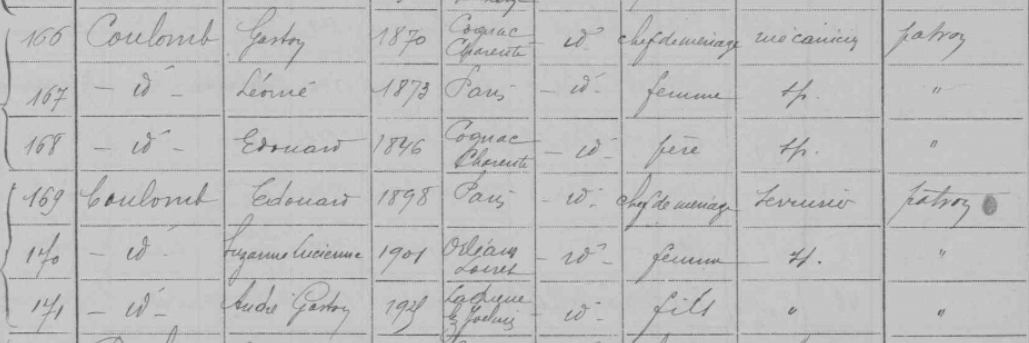 166 Coulomb Gaston 1870 Cognac Charente id chef de ménage mécanicien patron
167 - id - Léonie 1873 Paris - id - femme sp. "
168 - id - Edouard 1846 Cognac Charente - id - père sp. "
169 Coulomb Edouard 1898 Paris - id - chef de ménage serrurier patron
170 - id - Suzanne Lucienne 1901 Orléans Loiret - id - femme sp. "
171 - id - André Gaston id - fils " "